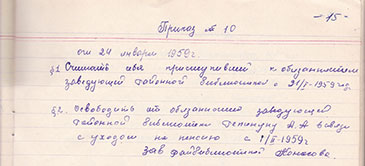 - 15 -
Приказ № 10
от 24 января 1959 г
§1. Считать себя приступившей к обязанностям
заведующей районной библиотекой с 21/I-1959 год.
§2. Освободить от обязанностей заведующей
районной библиотеки А.А. в связи
с уходом на пенсию с 1/II-1959г
зав райбиблиотекой